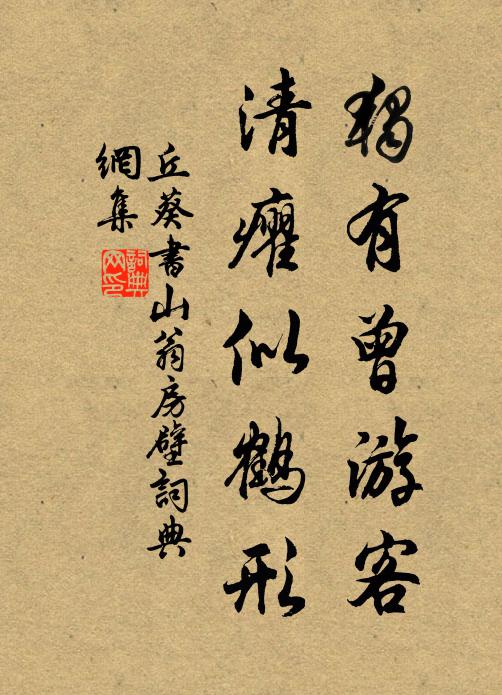 獨有曾游客
清癯似鶴形
丘葵書山翁房壁詞典
網集
詞典
网印